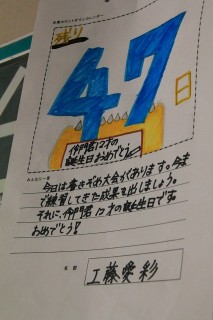 残り
47
日
伊門君12才の
誕生日おめでとう
今日は書きぞめ大会があります。今ま
で練習してきた成果を出しましょう。
それに、伊門君12才の誕生日です。
おめでとう!
名前
工藤愛彩